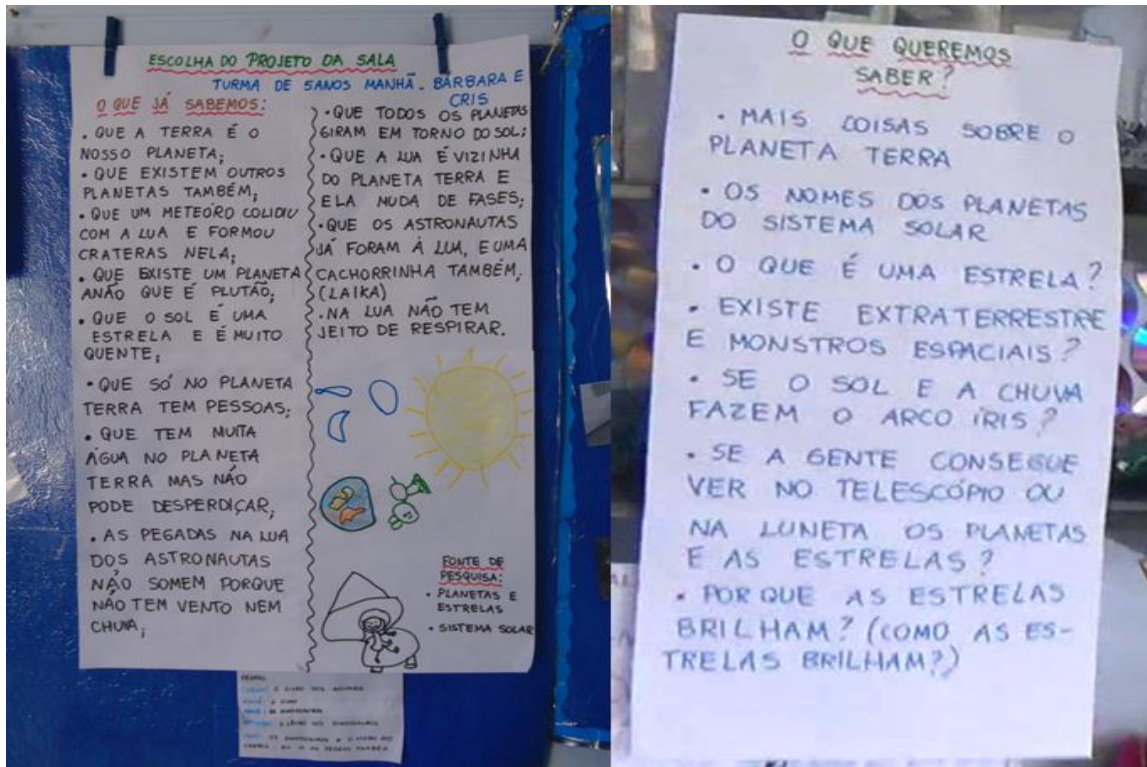 ESCOLHA DO PROJETO DA SALA
TURMA DE 5ANOS MANHÃ. BÁRBARA E
CRIS
O QUE JÁ SABEMOS:
• QUE A TERRA É O
NOSSO PLANETA;
• QUE EXISTEM OUTROS
PLANETAS TAMBÉM;
• QUE UM METEÓRO COLIDIU
COM A LUA E FORMOU
CRATERAS NELA;
• QUE EXISTE UM PLANETA
ANÃO QUE É PLUTÃO;
• QUE O SOL É UMA
ESTRELA E É MUITO
QUENTE;
• QUE SÓ NO PLANETA
TERRA TEM PESSOAS;
• QUE TEM MUITA
ÁGUA NO PLANETA
TERRA MAS NÃO
PODE DESPERDIÇAR;
• AS PEGADAS NA LUA
DOS ASTRONAUTAS
NÃO SOMEM PORQUE
NÃO TEM VENTO NEM
CHUVA;
• QUE TODOS OS PLANETAS
GIRAM EM TORNO DO SOL;
• QUE A LUA É VIZINHA
DO PLANETA TERRA E
ELA MUDA DE FASES;
• QUE OS ASTRONAUTAS
JÁ FORAM À LUA, E UMA
CACHORRINHA TAMBÉM,
(LAIKA)
• NA LUA NÃO TEM
JEITO DE RESPIRAR.
FONTE DE
PESQUISA:
• PLANETAS E
ESTRELAS
• SISTEMA SOLAR
O QUE QUEREMOS
SABER?
• MAIS COISAS SOBRE O
PLANETA TERRA
• OS NOMES DOS PLANETAS
DO SISTEMA SOLAR
• O QUE É UMA ESTRELA?
• EXISTE EXTRATERRESTRE
E MONSTROS ESPACIAIS?
• SE O SOL E A CHUVA
FAZEM O ARCO ÍRIS?
• SE A GENTE CONSEGUE
VER NO TELESCÓPIO OU
NA LUNETA OS PLANETAS
E AS ESTRELAS?
• POR QUE AS ESTRELAS
BRILHAM? (COMO AS ES-
TRELAS BRILHAM?)